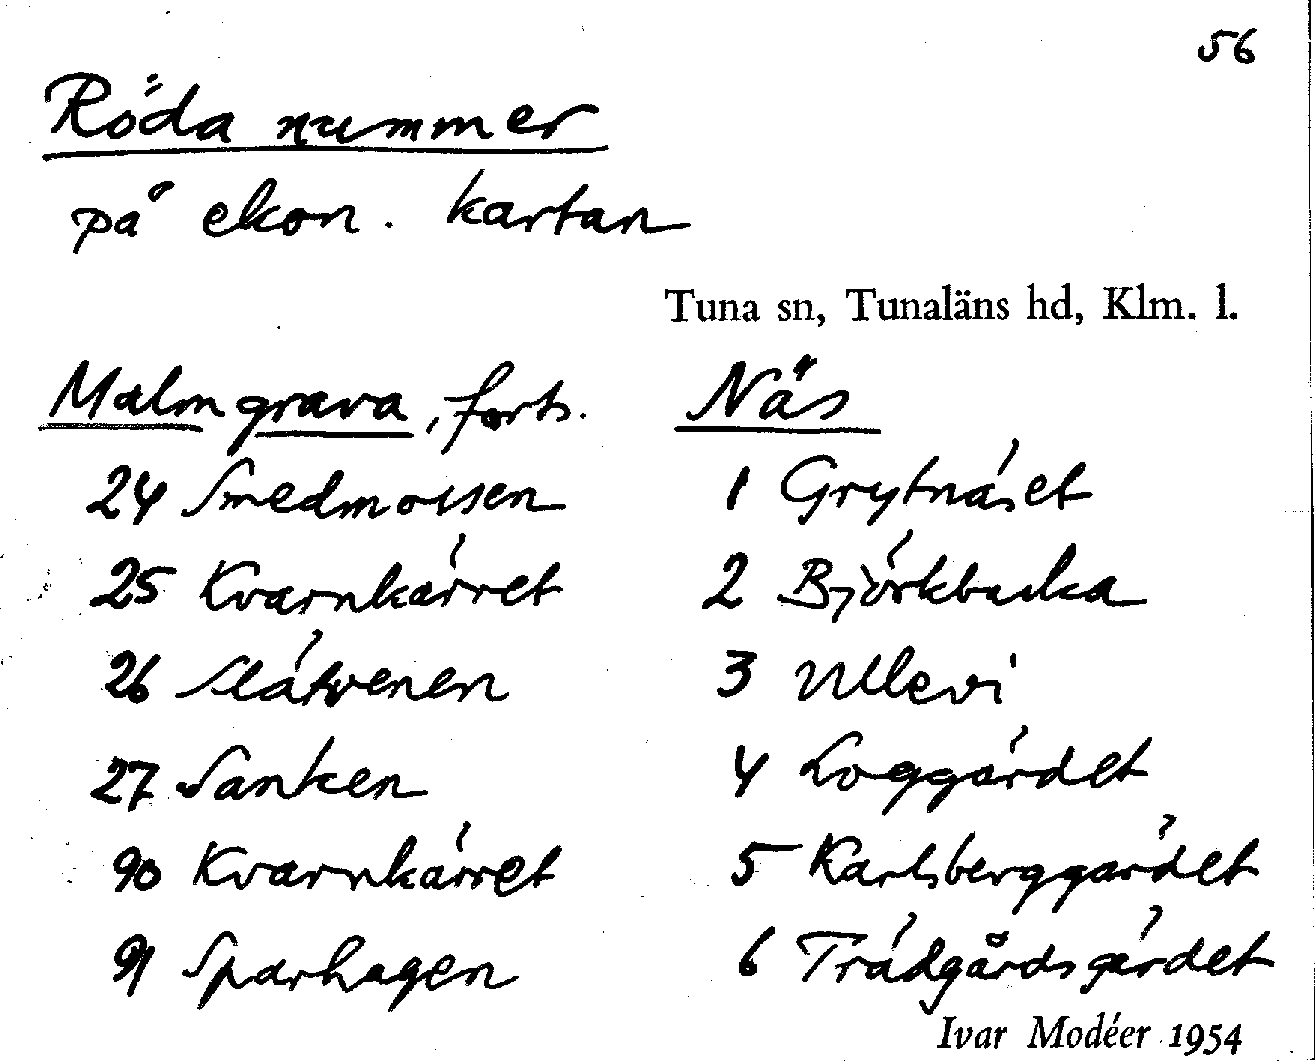 56
Röda nummer
på ekon. kartan
Tuna sn, Tunaläns hd, Klm. l.
Malmgrava, forts.
24 Smedmossen
25 Kvarnkärret
26 Slätvenen
27 Sanken
90 Kvarnkärret
91 Sparhagen
Näs
1 Grytnäset
2 Björkbacka
3 Ullevi
4 Loggärdet
5 Karlsberggärdet
6 Trädgårdsgärdet
Ivar Modéer 1954